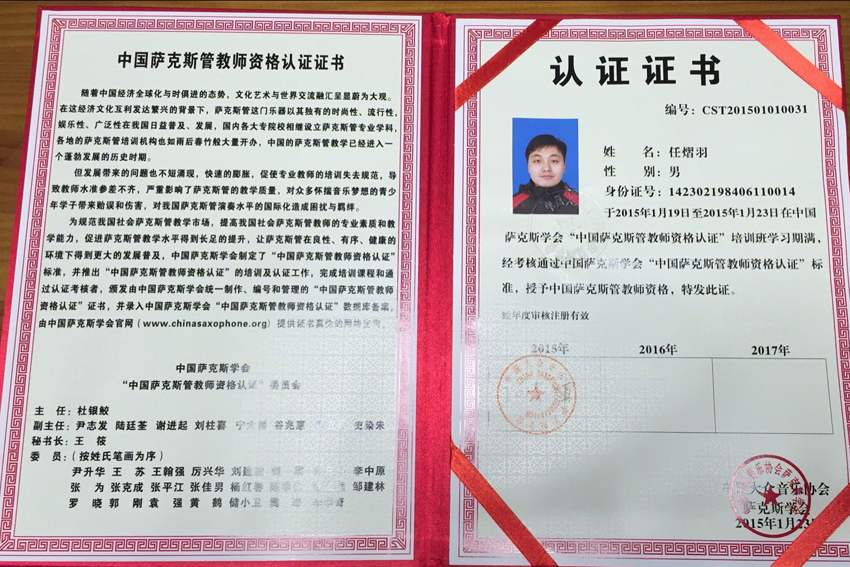 中国萨克斯管教师资格认证证书
随着中国经济全球化与时俱进的态势，文化艺术与世界交流融汇呈显蔚为大观。
在这经济文化互利发达繁兴的背景下，萨克斯管这门乐器以其独有的时尚性、流行性、
娱乐性、广泛性在我国日益普及、发展，国内各大专院校相继设立萨克斯管专业学科，
各地的萨克斯管培训机构也如雨后春竹般大量开办，中国的萨克斯管教学已经进入一
个蓬勃发展的历史时期。
但发展带来的问题也不短涌现，快速的膨胀，促使专业教师的培训失去规范，导
致教师水准参差不齐，严重影响了萨克斯管的教学质量，对众多怀揣音乐梦想的青少
年学子带来贻误和伤害，对我国萨克斯管演奏水平的国际化造成困扰与羁绊。
为规范我国社会萨克斯管教学市场，提高我国社会萨克斯管教师的专业素质和教
学能力，促进萨克斯管教学水平得到长足的提升，让萨克斯管在良性、有序、健康的
环境下得到更大的发展普及，中国萨克斯学会制定了“中国萨克斯管教师资格认证”
标准，并推出“中国萨克斯管教师资格认证”的培训及认证工作，完成培训课程和通
过认证考核者，颁发由中国萨克斯学会统一制作、编号和管理的“中国萨克斯管教师
资格认证”证书，并录入中国萨克斯学会“中国萨克斯管教师资格认证”数据库备案，
由中国萨克斯学会官网（www.chinasaxophone.org）提供证书真伪的网络查询。
中国萨克斯学会
“中国萨克斯管教师资格认证”委员会
主 任：杜银鲛
副主任：尹志发 陆廷荃 谢进起 刘柱喜 谷兆惠 史染朱
秘书长：王 筱
委 员：（按姓氏笔画为序）
尹升华 王 苏 王翰强 厉兴华 李中原
张 为 张克成 张平江 张佳男 杨红善 邹建林
罗 晓 郭 刚 袁 强 黄 鹤 储小卫
认证证书
编号：CST201501010031
姓 名：任熠羽
性 别：男
身份证号：142302198406110014
于2015年1月19日至2015年1月23日在中国
萨克斯学会“中国萨克斯管教师资格认证”培训班学习期满，
经考核通过中国萨克斯学会“中国萨克斯管教师资格认证”标
准，授予中国萨克斯管教师资格，特发此证。
经年度审核注册有效
2015年 2016年 2017年
大众音乐协会
萨克斯学会
2015年1月23日